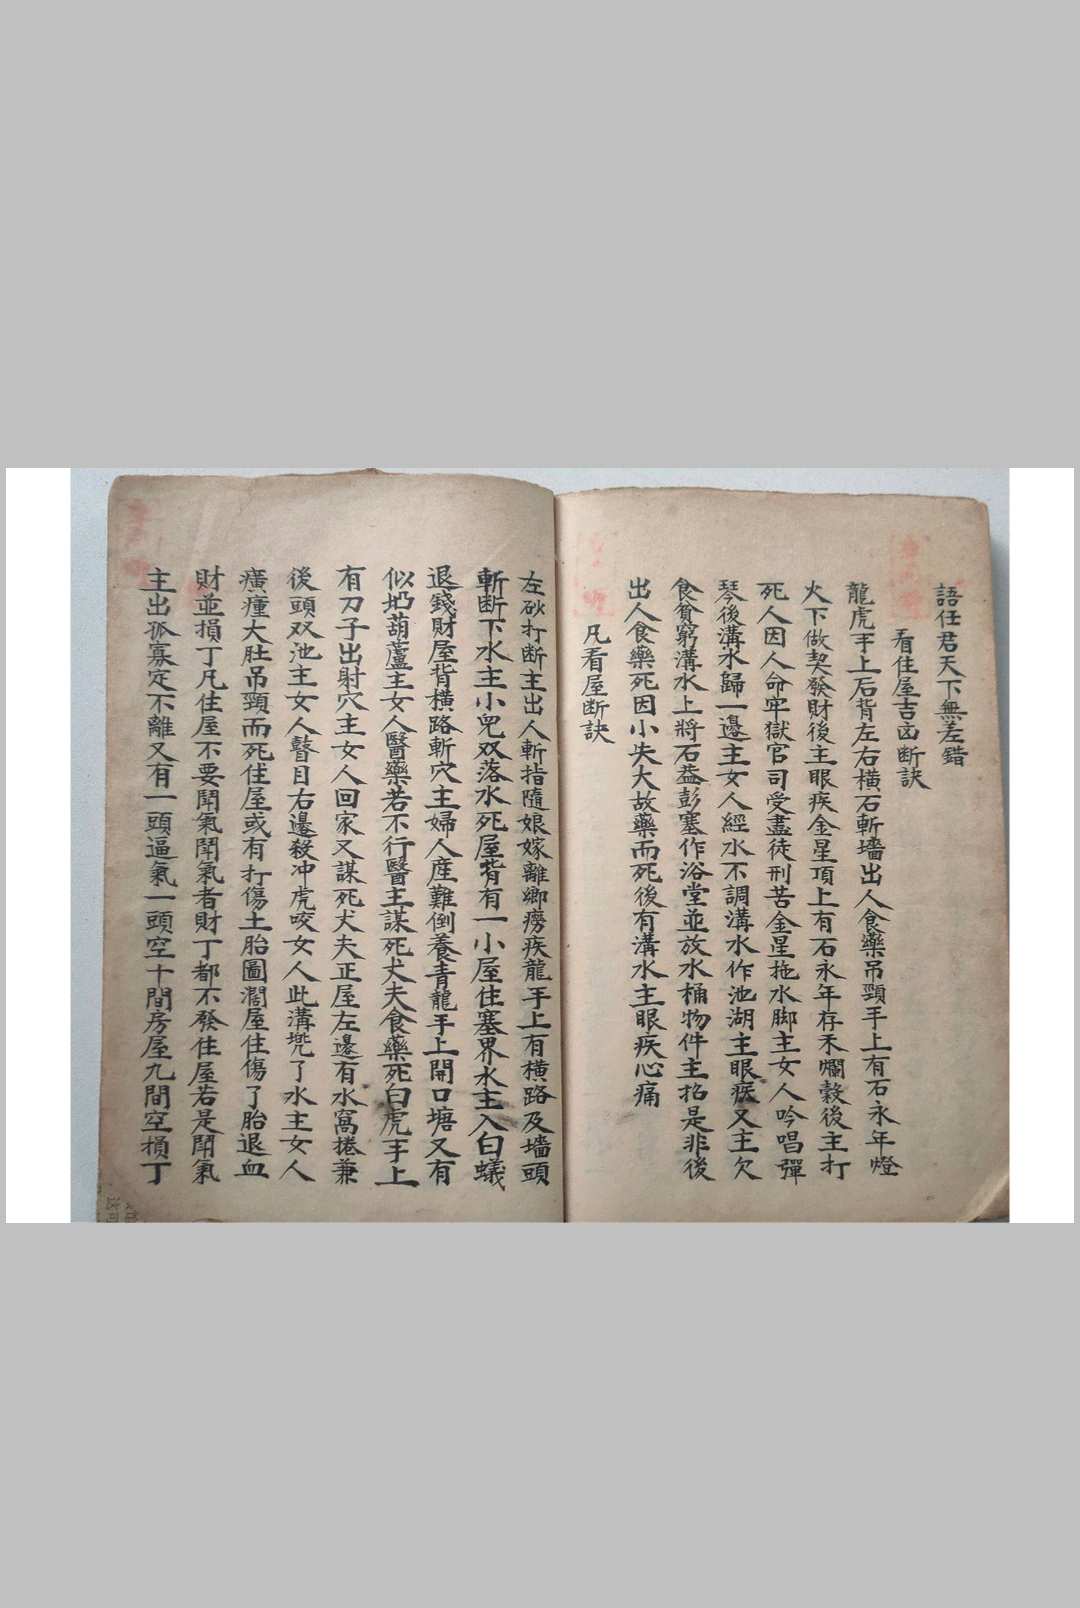 語任君天下無差錯
看住屋吉凶断訣
龍虎手上后背左右橫石斬墻出人食藥吊頸手上有石永年燈
火下做契發財後主眼疾金星頂上有石永年存禾爛穀後主打
死人因人命牢獄官司受盡徒刑苦金星拖水脚主女人吟唱彈
琴後溝水歸一邊主女人經水不調溝水作池湖主眼疾又主欠
食貧窮溝水上將石蓋彭塞作浴堂並放水桶物件主招是非後
出人食藥死因小失大故藥而死後有溝水主眼疾心痛
凡看屋断訣
左砂打断主出人斬指隨娘嫁離鄉癆疾龍手上有橫路及墻頭
斬断下水主小兒双落水死屋背有一小屋住塞界水主入白蟻
退錢財屋背橫路斬穴主婦人産難倒養青龍手上開口塘又有
似葫蘆主女人醫藥若不行醫主謀死丈夫食藥死曰虎手上
有刀子出射穴主女人回家又謀死丈夫正屋左邊有水窩捲兼
後頭双池主女人瞽目右邊殺冲虎咬女人此溝兜了水主女人
癀瘇大肚吊頸而死住屋或有打傷土胎圖濶屋住傷了胎退血
財並損丁凡住屋不要鬧氣鬧氣者財丁都不發住屋若是鬧氣
主出孤寡定不離又有一頭逼氣一頭空十間房屋九間空損丁